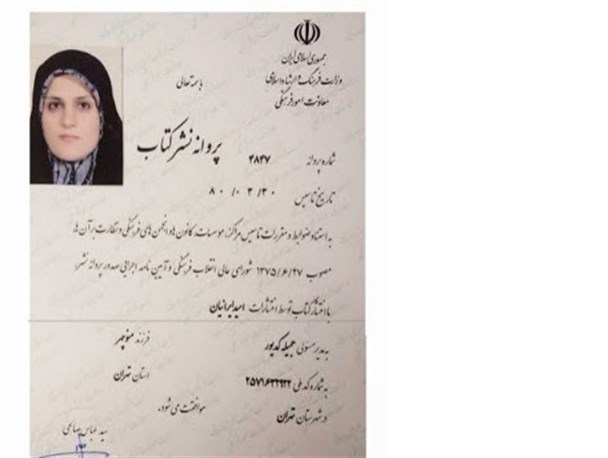 جمهوری اسلامی ایران
وزارت فرهنگ و ارشاد اسلامی
معاونت امور فرهنگی
باسمه تعالی
پروانه نشر کتاب
شماره پروانه ۴۸۴۷
تاریخ تاسیس ۸۰/۰۲/۳۰
به استناد ضوابط و مقررات تاسیس مراکز، موسسات، کانون ها و انجمن های فرهنگی و نظارت بر آن ها،
مصوب ۱۳۷۵/۶/۲۷ شورای عالی انقلاب فرهنگی و آیین نامه اجرایی صدور پروانه نشر؛
با انتشار کتاب توسط انتشارات امید ایرانیان
به مدیر مسئولی جمیله کدیور فرزند منوچهر
به شماره کد ملی ۲۵۷۱۶۳۲۹۲۲ استان تهران
در شهرستان تهران موافقت می شود.
سید عباس صالحی